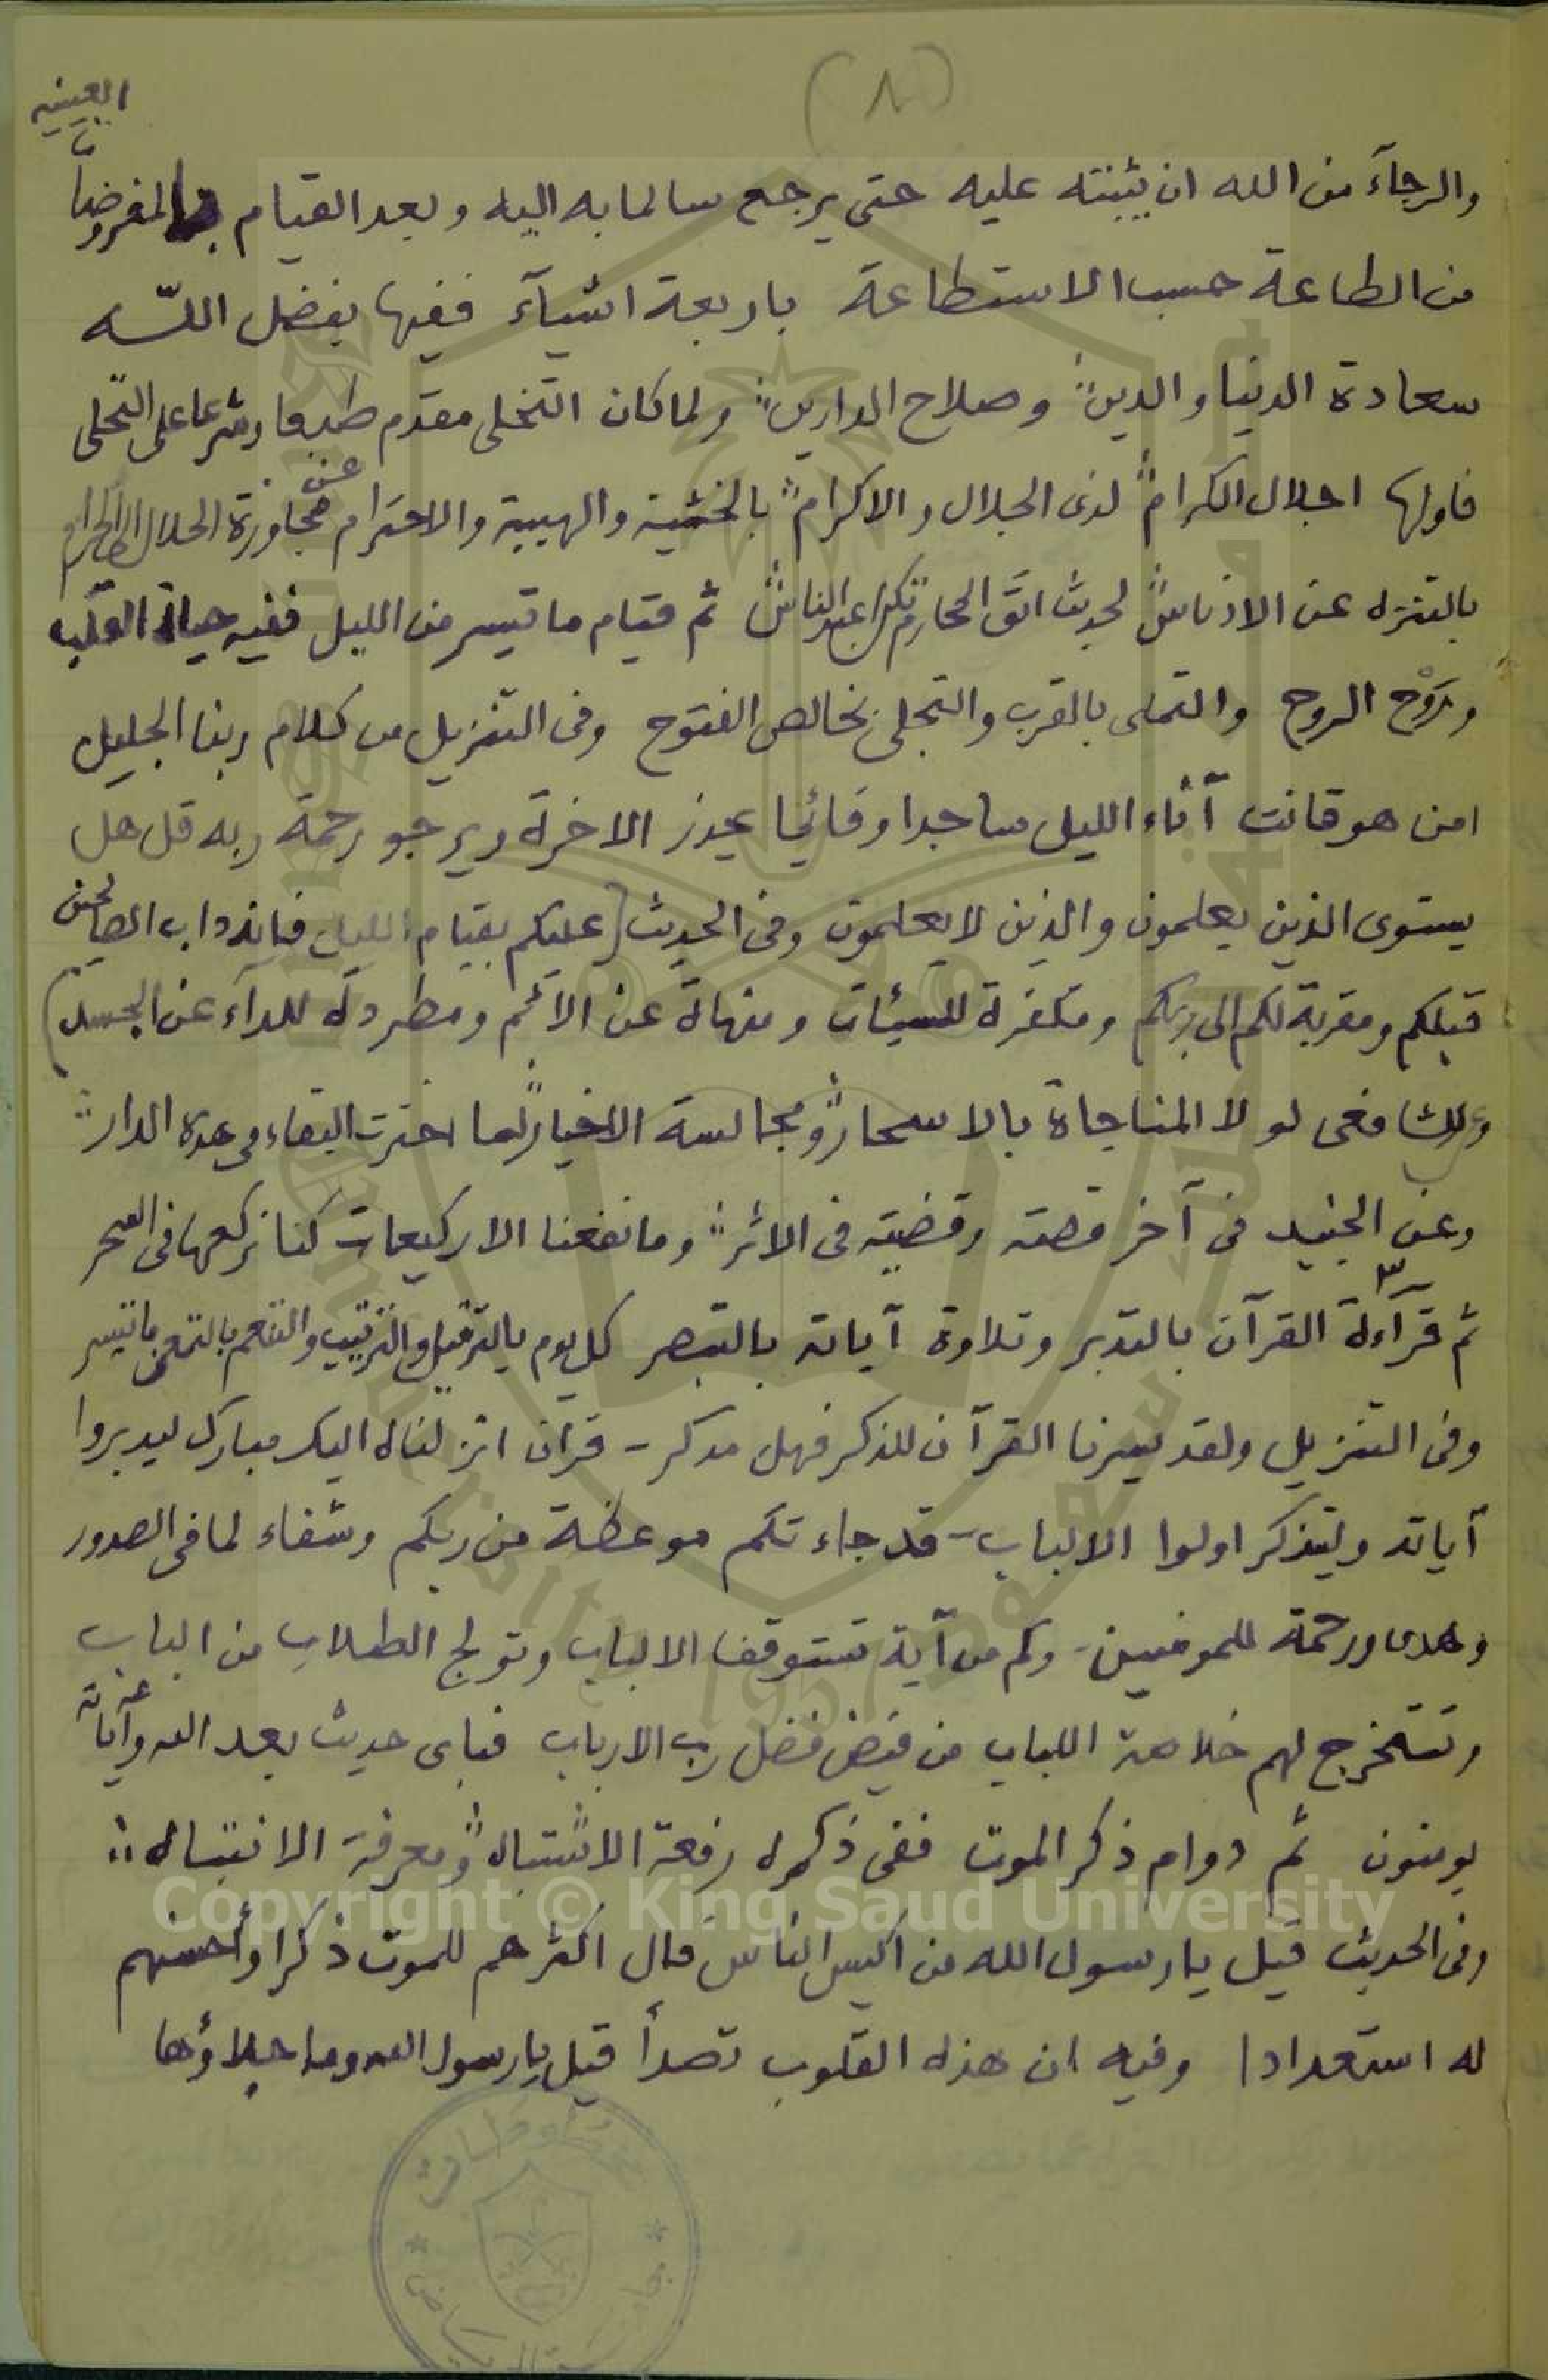 (١٨)
العينيه
والرجآء من الله ان يثبته عليه حتى يرجع سالما به اليه وبعد القيام بالمفروضات
من الطاعة حسب الاستطاعة باربعة اشيآء ففيها بفضل اللّه
سعادة الدنيا والدين وصلاح الدارين ولما كان التخلى مقدم طبعا وشرعا على التحلى
فاولها اجلال الكرام لذى الجلال والاكرام بالخشية والهيبة والاحترام عن مجاوزة الحلال الى الحرام
بالتنزه عن الادناس لحديث اتق المحارم تكن اعبد الناس ثم قيام ما تيسر من الليل ففيه حياة القلب
ورَوْح الروح والتملى بالقرب والتجلى بخالص الفتوح وفى التنزيل من كلام ربنا الجليل
امن هو قانت آناء الليل ساجدا وقائما يحذر الاخرة ويرجو رحمة ربه قل هل
يستوى الذين يعلمون والذين لا يعلمون وفى الحديث (عليكم بقيام الليل فانه داب الصالحين
قبلكم ومقربة لكم الى ربكم ومكفرة للسيئات ومنهاة عن الاثم ومطردة للداء عن الجسد)
وللشافعى لولا المناجاة بالاسحار ومجالسة الاخيار لما اخترت البقاء فى هذه الدار
وعن الجنيد فى آخر قصته وقضيته فى الاثر وما نفعنا الا ركيعات كنا نركعها فى السحر
ثم قرآءة القرآن بالتدبر وتلاوة آياته بالتبصر كل يوم بالترتيل والترتيب والتنعم بالتمعن ما تيسر
وفى التنزيل ولقد يسرنا القرآن للذكر فهل مدكر - قران انزلناه اليك مبارك ليدبروا
آياته وليتذكر اولوا الالباب - قد جاءتكم موعظة من ربكم وشفاء لما فى الصدور
وهدى ورحمة للمومنين - وكم من آية تستوقف الالباب وتولج الطلاب من الباب
وتستخرج لهم خلاصة اللباب من فيض فضل رب الارباب فباى حديث بعد الله وآياته
يومنون ثم دوام ذكر الموت ففى ذكره رفعة الاشتباه ومعرفة الانتباه
وفى الحديث قيل يا رسول الله من اكيس الناس قال اكثرهم للموت ذكرا وأحسنهم
له استعدادا وفيه ان هذه القلوب تصدأ قيل يا رسول الله وما جلاؤها
Copyright © King Saud University